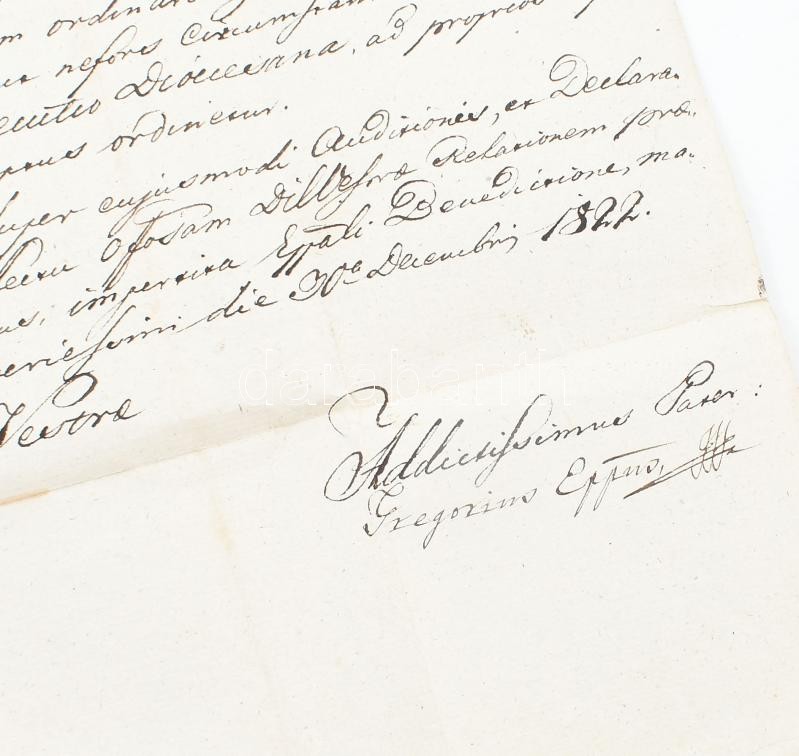 ordinar
nefors Circumstan
Dioecesana, ad proprios
ordinetur.
super ejusmodi Auditionis, et Declara-
Ofosam DilVestrae Relationem prae-
impertita Eppali Benedictione, ma-
die 30a Decembris 1822.
Vestrae
Addictissimus Pater:
Gregorius Eppus,